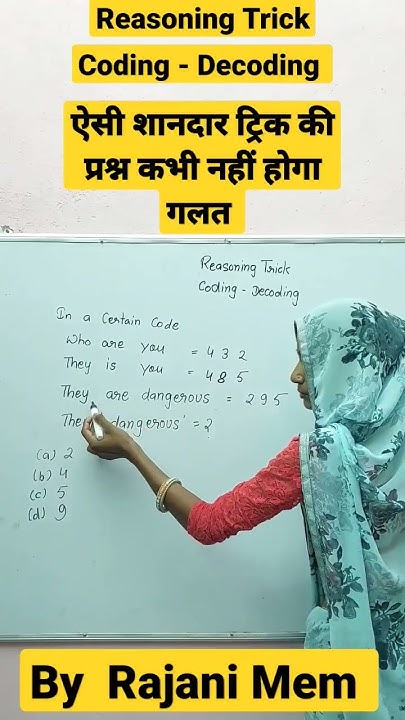 Reasoning Trick
Coding - Decoding
ऐसी शानदार ट्रिक की
प्रश्न कभी नहीं होगा
गलत
Reasoning Trick
Coding - Decoding
In a Certain Code
Who are you = 4 3 2
They is you = 4 8 5
They are dangerous = 2 9 5
dangerous' = ?
(a) 2
(b) 4
(c) 5
(d) 9
By Rajani Mem